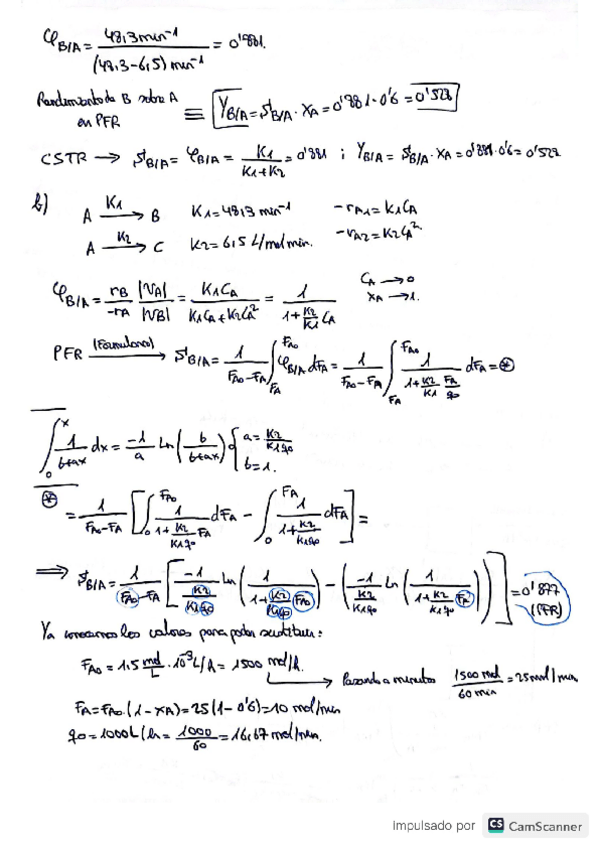 φB/A = 48,3 min⁻¹ / (48,3-6,5) min⁻¹ = 0'881.
Rendimiento de B sobre A en PFR ≡ YB/A = SB/A · XA = 0'881 · 0'6 = 0'528
CSTR → SB/A = φB/A = K1 / (K1+K2) = 0'881 ; YB/A = SB/A · XA = 0'881 · 0'6 = 0'528
b) A —K1→ B K1 = 48,3 min⁻¹ -rA1 = K1CA
A —K2→ C K2 = 6,5 L/mol min. -rA2 = K2CA²
φB/A = rB/-rA |νA|/|νB| = K1CA / (K1CA + K2CA²) = 1 / (1 + K2/K1 CA) CA → 0
XA → 1.
PFR (Formulario) → SB/A = 1/(FA0-FA) ∫ FA FA0 φB/A dFA = 1/(FA0-FA) ∫ FA FA0 1/(1 + K2/K1 FA/q0) dFA = ⊛
∫ 0 x 1/(b+ax) dx = -1/a Ln (b/(b+ax)) { a = K2/(K1q0)
b = 1.
⊛ = 1/(FA0-FA) [ ∫ 0 FA0 1/(1 + K2/(K1q0) FA) dFA - ∫ 0 FA 1/(1 + K2/(K1q0)) dFA ] =
⇒ SB/A = 1/(FA0-FA) [ -1/(K2/(K1q0)) Ln (1/(1 + K2/(K1q0) FA0)) - ( -1/(K2/(K1q0)) Ln (1/(1 + K2/(K1q0) FA)) ) ] = 0'877 (PFR)
Ya conocemos los valores para poder sustituir:
FA0 = 1,5 mol/L · 10⁻³ L/h = 1500 mol/h.
→ Pasando a minutos 1500 mol / 60 min = 25 mol/min
FA = FA0 · (1 - XA) = 25 (1 - 0'6) = 10 mol/min
q0 = 1000 L/h = 1000/60 = 16,67 mol/min.
Impulsado por CS CamScanner